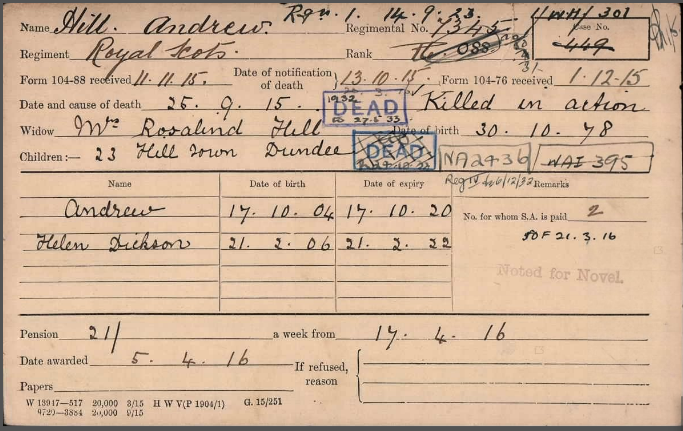 Rgn. 1. 14. 9. 23 1/WH/301
Name Hill. Andrew. Regimental No. 1345 Case No.
Regiment Royal Scots. Rank 449
Form 104-88 received 11.11.15. Date of notification of death 13.10.15. Form 104-76 received 1.12.15
Date and cause of death 25. 9. 15. DEAD Killed in action
Widow Mrs Rosalind Hill Date of birth 30. 10. 78
Children:— 23 Hill Town Dundee DEAD NA2436 WAI 395
Name Date of birth Date of expiry Remarks
Andrew 17. 10. 04 17. 10. 20 No. for whom S.A. is paid 2
Helen Dickson 21. 2. 06 21. 2. 22 21. 3. 16
Noted for Novel.
Pension 21/ a week from 17. 4. 16
Date awarded 5. 4. 16 If refused, reason
Papers
W 13947—517 20,000 3/15 H W V(P 1904/1) G. 15/251
9720—3884 20,000 9/15